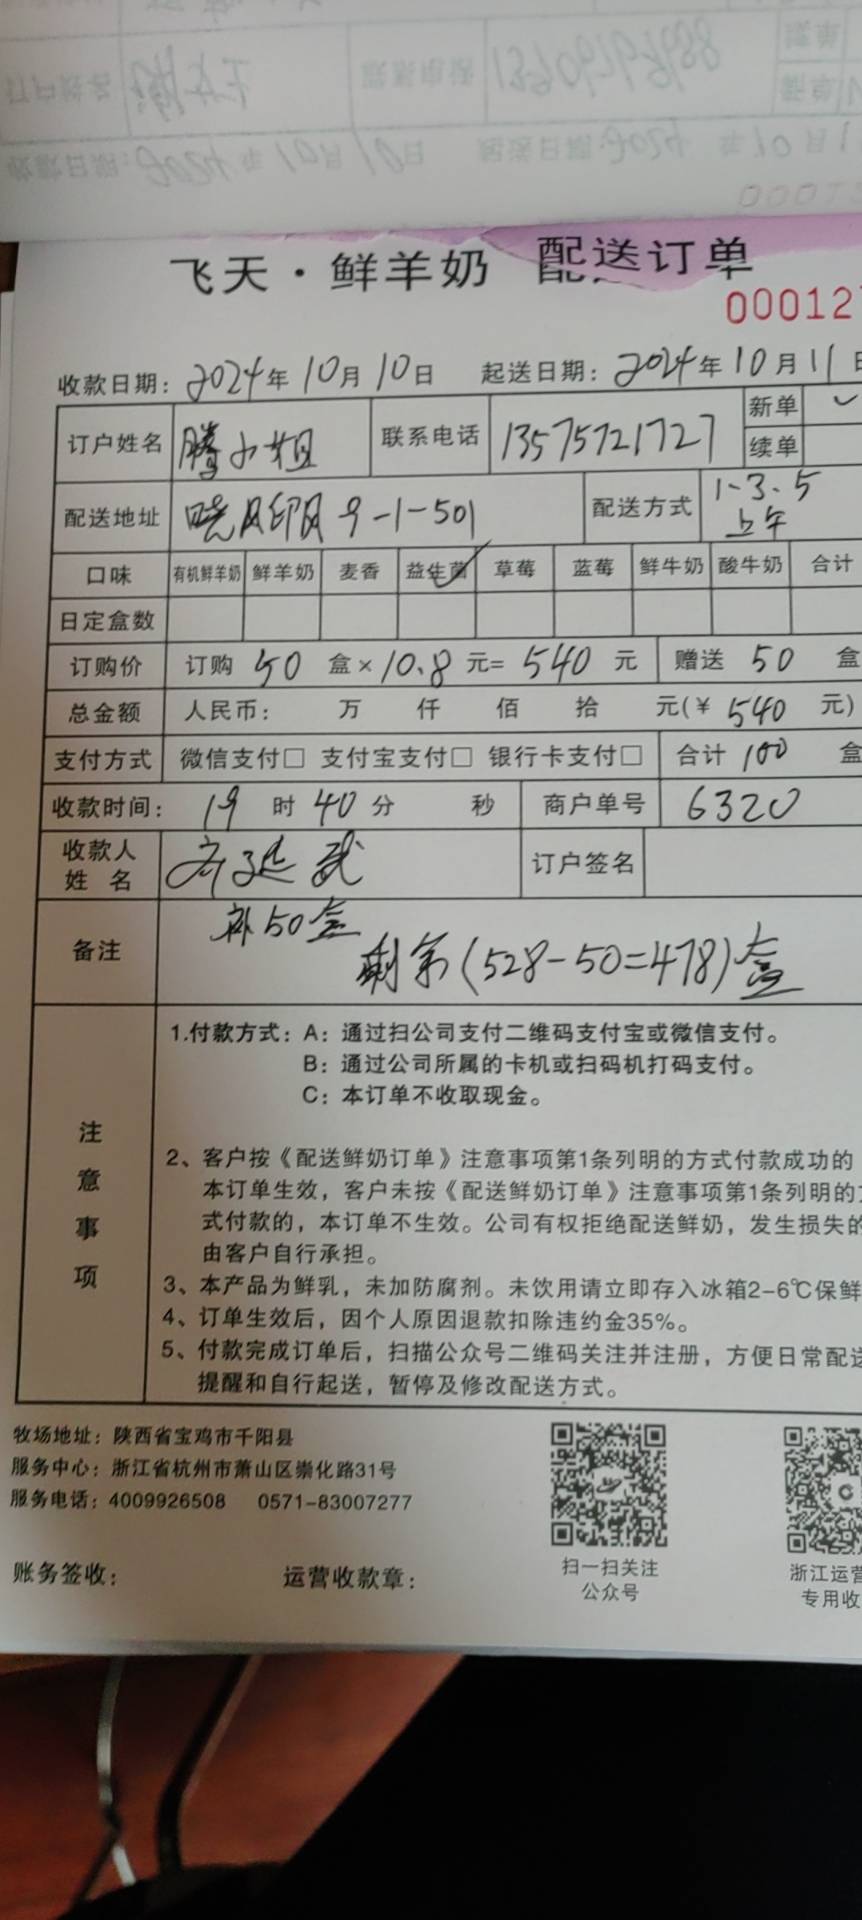 飞天·鲜羊奶 配送订单
00012
收款日期：2024年10月10日 起送日期：2024年10月11日
订户姓名 腾小姐 联系电话 13575721727 新单 ✓
续单
配送地址 晓风印月9-1-501 配送方式 1、3、5
上午
口味 有机鲜羊奶 鲜羊奶 麦香 益生菌 草莓 蓝莓 鲜牛奶 酸牛奶 合计
日定盒数
订购价 订购 50 盒×10.8元=540元 赠送 50 盒
总金额 人民币： 万 仟 佰 拾 元(¥ 540 元)
支付方式 微信支付□ 支付宝支付□ 银行卡支付□ 合计 100 盒
收款时间： 19 时 40 分 秒 商户单号 6320
收款人
姓 名 订户签名
补50盒
备注 剩余(528-50=478)盒
1.付款方式：A：通过扫公司支付二维码支付宝或微信支付。
B：通过公司所属的卡机或扫码机打码支付。
C：本订单不收取现金。
注意事项
2、客户按《配送鲜奶订单》注意事项第1条列明的方式付款成功的
本订单生效，客户未按《配送鲜奶订单》注意事项第1条列明的方
式付款的，本订单不生效。公司有权拒绝配送鲜奶，发生损失的
由客户自行承担。
3、本产品为鲜乳，未加防腐剂。未饮用请立即存入冰箱2-6℃保鲜
4、订单生效后，因个人原因退款扣除违约金35%。
5、付款完成订单后，扫描公众号二维码关注并注册，方便日常配送
提醒和自行起送，暂停及修改配送方式。
牧场地址：陕西省宝鸡市千阳县
服务中心：浙江省杭州市萧山区崇化路31号
服务电话：4009926508 0571-83007277
账务签收： 运营收款章： 扫一扫关注
公众号
浙江运营
专用收